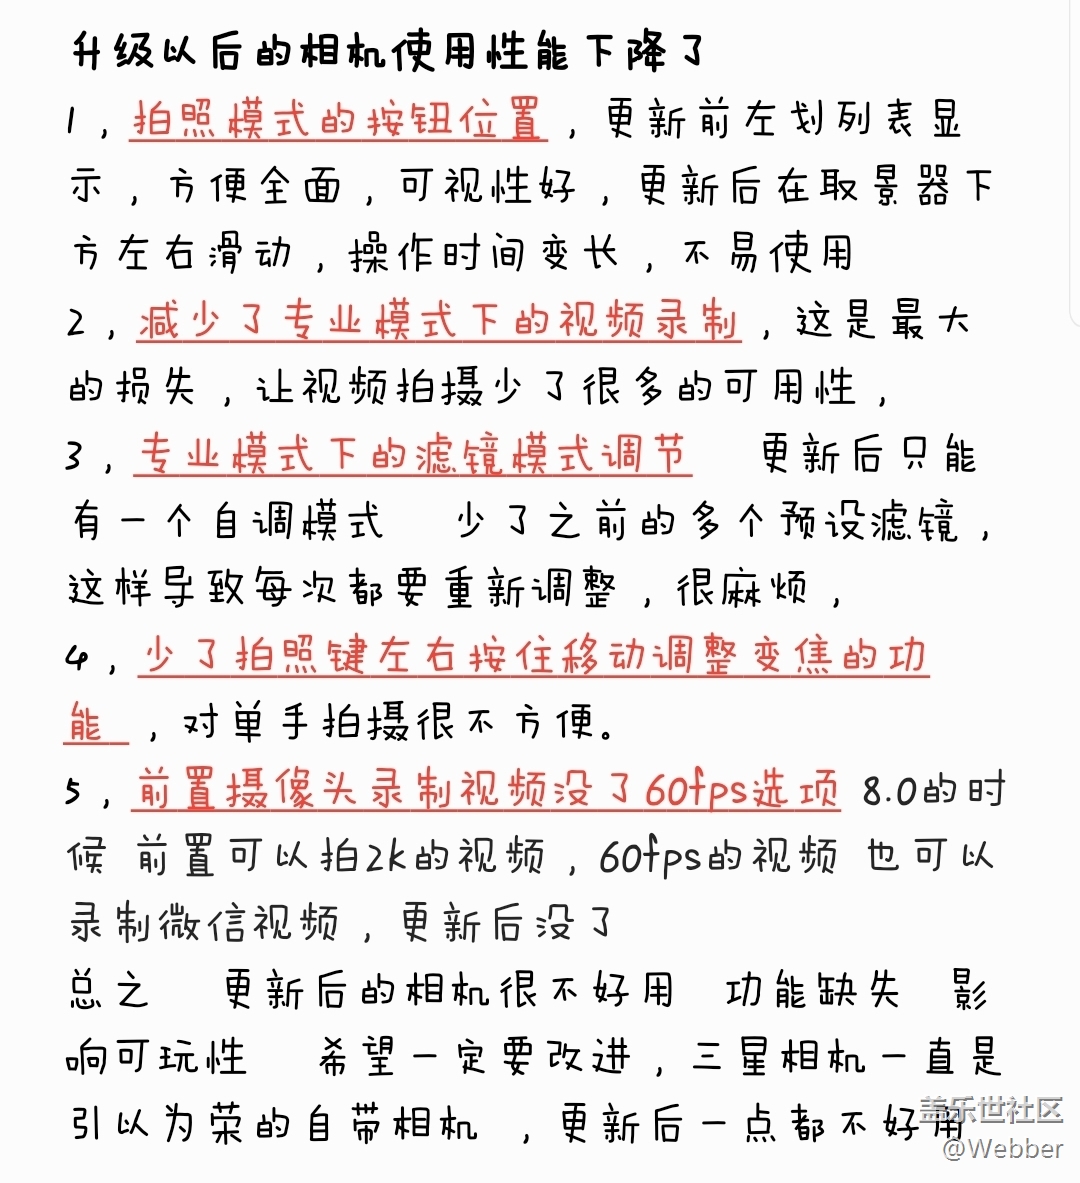 升级以后的相机使用性能下降了
1，拍照模式的按钮位置，更新前左划列表显
示，方便全面，可视性好，更新后在取景器下
方左右滑动，操作时间变长，不易使用
2，减少了专业模式下的视频录制，这是最大
的损失，让视频拍摄少了很多的可用性，
3，专业模式下的滤镜模式调节 更新后只能
有一个自调模式 少了之前的多个预设滤镜，
这样导致每次都要重新调整，很麻烦，
4，少了拍照键左右按住移动调整变焦的功
能 ，对单手拍摄很不方便。
5，前置摄像头录制视频没了60fps选项 8.0的时
候 前置可以拍2k的视频，60fps的视频 也可以
录制微信视频，更新后没了
总之 更新后的相机很不好用 功能缺失 影
响可玩性 希望一定要改进，三星相机一直是
引以为荣的自带相机 ，更新后一点都不好用
盖乐世社区
@Webber